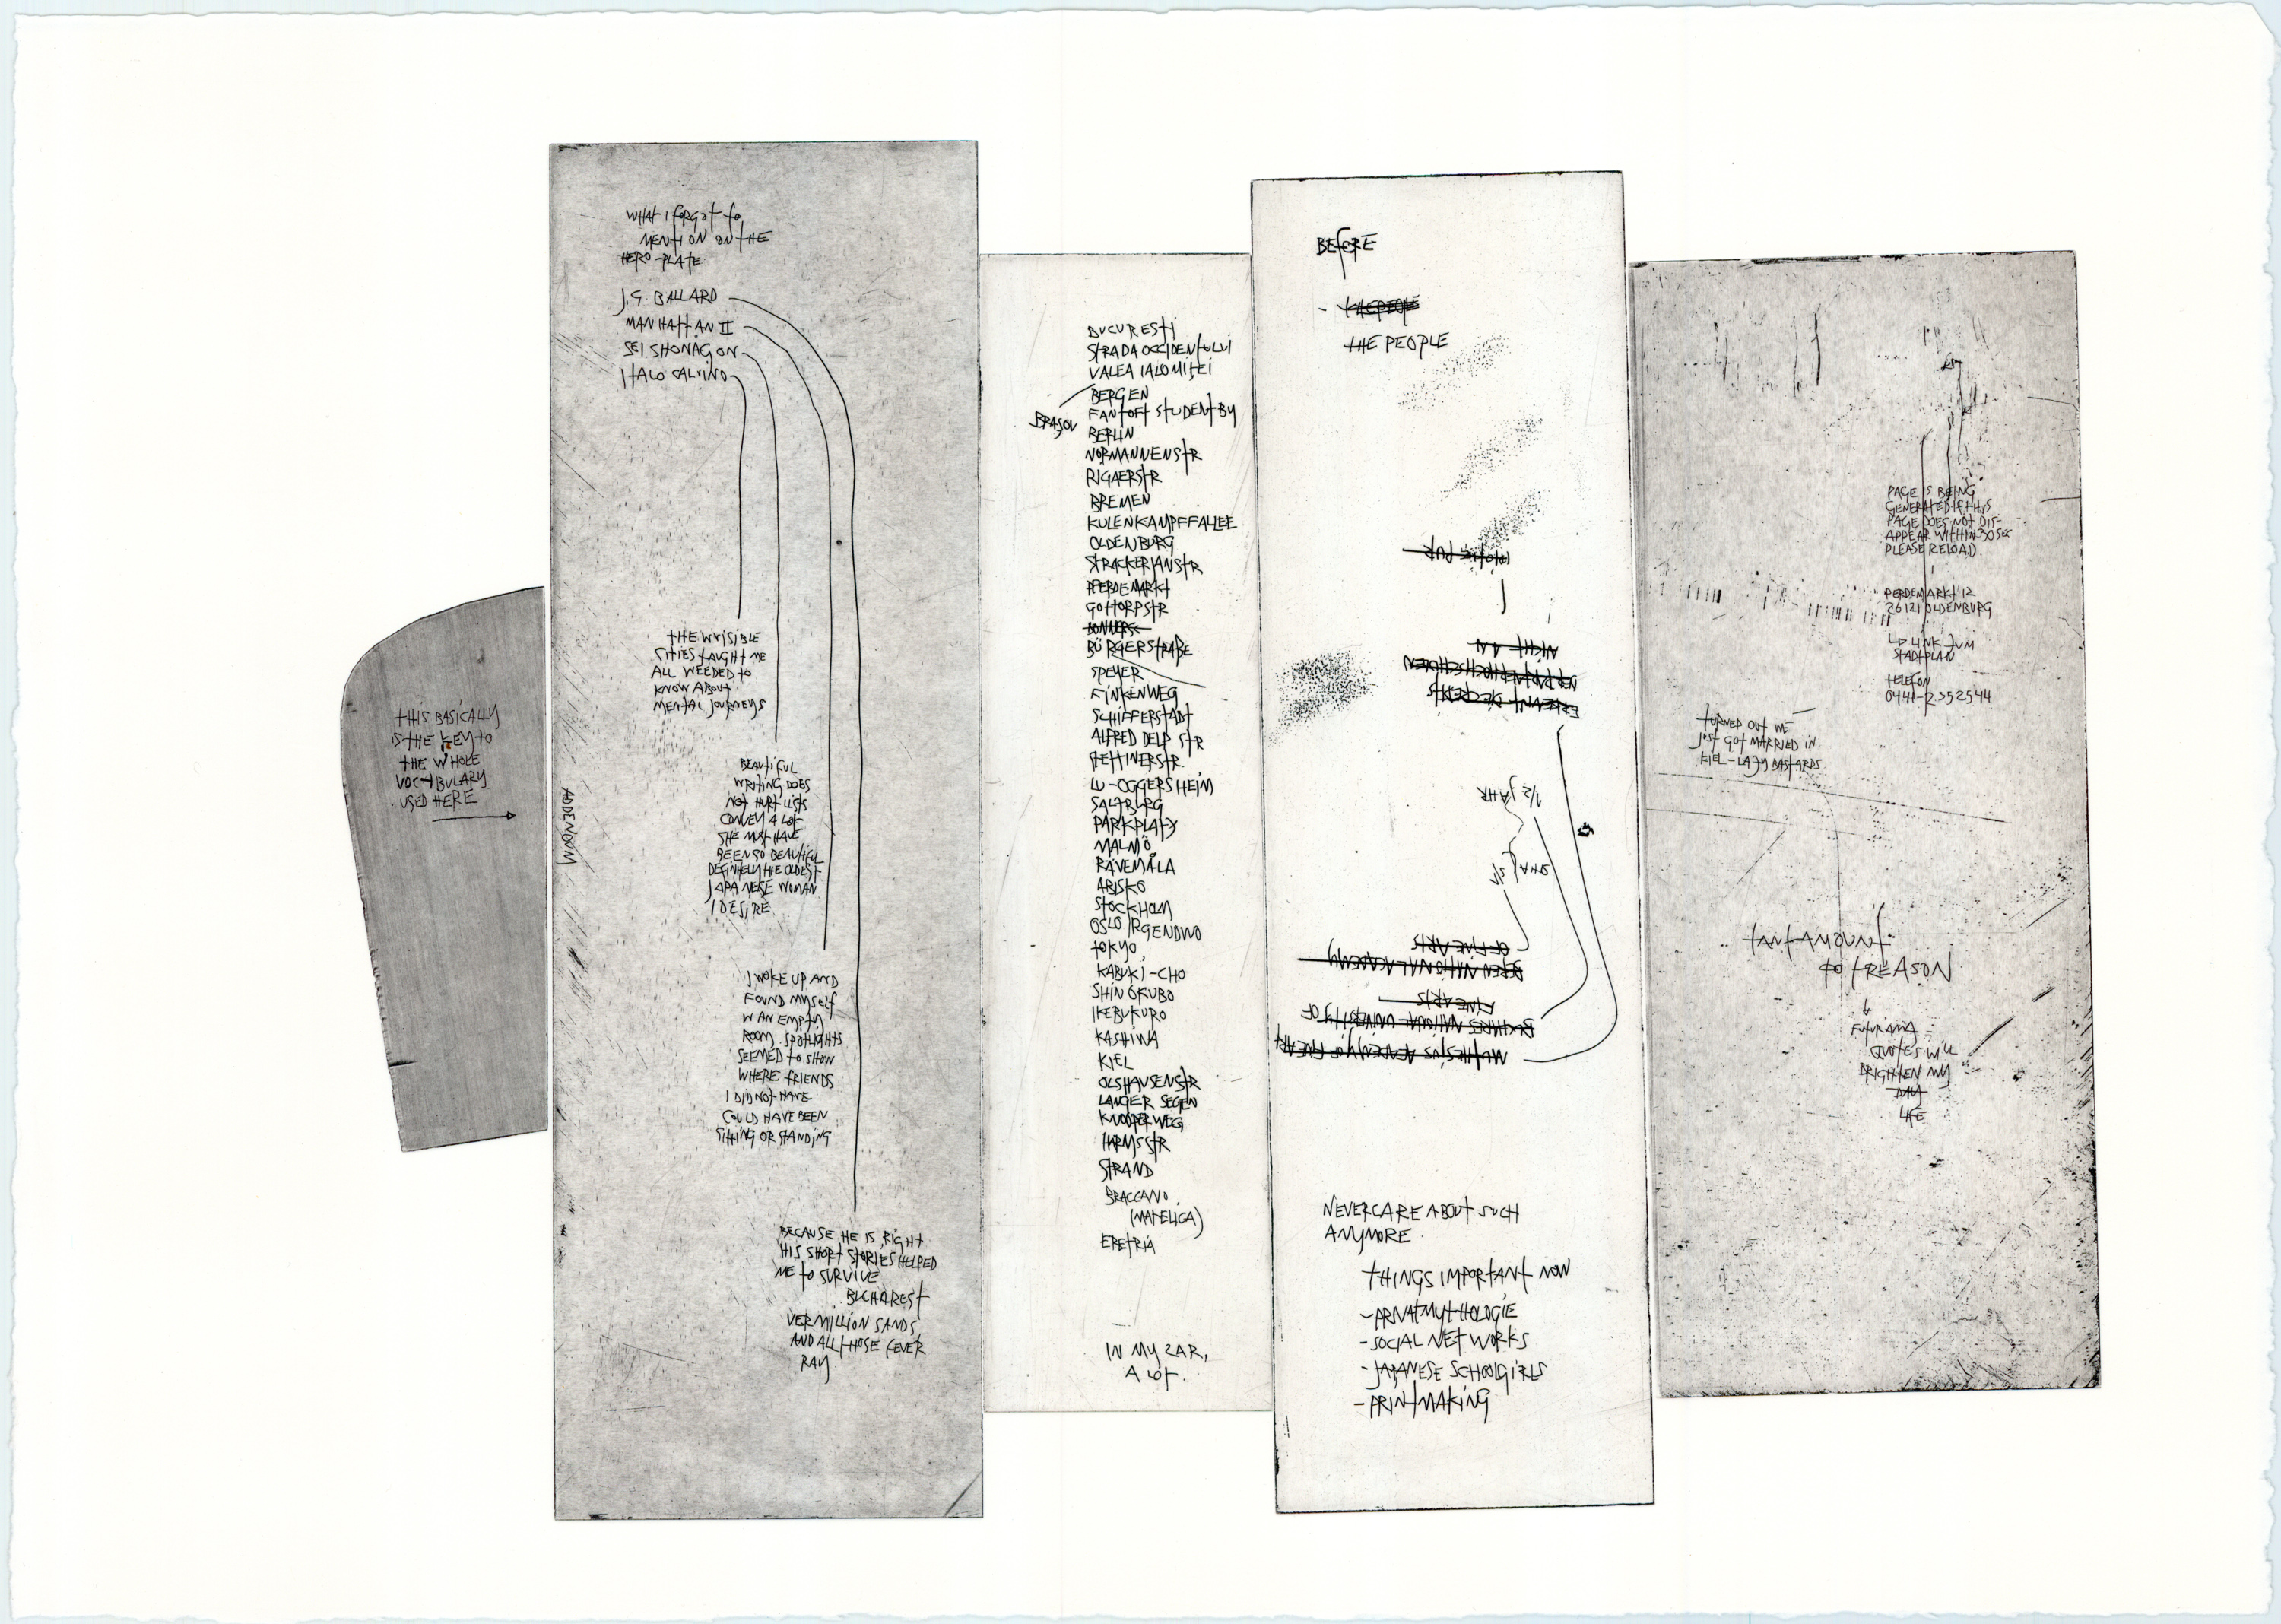 THIS BASICALLY
IS THE KEY TO
THE WHOLE
VOCABULARY
USED HERE
ADDENDUM
WHAT I FORGOT TO
MENTION ON THE
HERO-PLATE
J.G. BALLARD
MANHATTAN II
SEI SHONAGON
ITALO CALVINO
THE INVISIBLE
CITIES TAUGHT ME
ALL I NEEDED TO
KNOW ABOUT
MENTAL JOURNEYS
BEAUTIFUL
WRITING DOES
NOT HURT LISTS
CONVEY A LOT
SHE MUST HAVE
BEEN SO BEAUTIFUL
DEFINITELY THE OLDEST
JAPANESE WOMAN
I DESIRE
I WOKE UP AND
FOUND MYSELF
IN AN EMPTY
ROOM. SPOTLIGHTS
SEEMED TO SHOW
WHERE FRIENDS
I DID NOT HAVE
COULD HAVE BEEN
SITTING OR STANDING
BECAUSE HE IS RIGHT
HIS SHORT STORIES HELPED
ME TO SURVIVE
BUCHAREST
VERMILLION SANDS
AND ALL THOSE FEVER
RAY
BUCURESTI
STRADA OCCIDENTULUI
VALEA IALOMIȚEI
BRAȘOV
BERGEN
FANTOFT STUDENTBY
BERLIN
NORMANNENSTR
RIGAERSTR
BREMEN
KULENKAMPFFALLEE
OLDENBURG
STRACKERJANSTR
PFERDEMARKT
GOTTORPSTR
BÜRGERSTRAßE
SPEYER
FINKENWEG
SCHIFFERSTADT
ALFRED DELP STR
STETTINERSTR.
LU-OGGERSHEIM
SALZBURG
PARKPLATZ
MALMÖ
RÄVEMÅLA
ABISKO
STOCKHOLM
OSLO IRGENDWO
TOKYO,
KABUKI-CHO
SHIN OKUBO
IKEBUKURO
KASHIWA
KIEL
OLSHAUSENSTR
LANGER SEGEN
KNOOPER WEG
HARMSSTR
STRAND
BRACCANO.
(MATELICA)
ERETRIA
IN MY CAR,
A LOT.
BEFORE
-
THE PEOPLE
NICHT AN
DER PARTNERHOCHSCHULEN
ERKENNT DEGREES
1/2 JAHR
JAHR
OF FINE ARTS
BERGEN NATIONAL ACADEMY
FINE ARTS
BUCHAREST NATIONAL UNIVERSITY OF
MUTHESIUS ACADEMY OF FINE ART
NEVER CARE ABOUT SUCH
ANYMORE.
THINGS IMPORTANT NOW
-PRIVATMYTHOLOGIE
-SOCIAL NETWORKS
-JAPANESE SCHOOLGIRLS
-PRINTMAKING
PAGE IS BEING
GENERATED IF THIS
PAGE DOES NOT DIS-
APPEAR WITHIN 30 SEC
PLEASE RELOAD.
PERDEMARKT 12
26121 OLDENBURG
LINK ZUM
STADTPLAN
TELEFON
0441-2352544
TURNED OUT WE
JUST GOT MARRIED IN
KIEL-LAZY BASTARDS
TANTAMOUNT
TO TREASON
FUTURAMA
QUOTES WILL
BRIGHTEN MY
DAY
LIFE